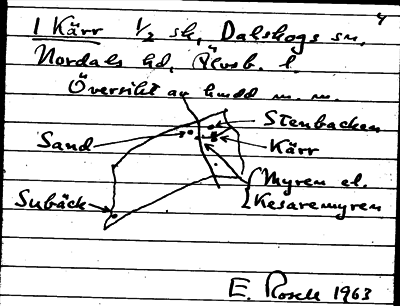 4
1 Kärr 1/2 sk, Dalskogs sn,
Nordals hd, Älvsb. l.
Översikt av hmdd m. m.
Stenbacken
Sand
Kärr
Myren el.
Kesaremyren
Subäck
E. Rosell 1963